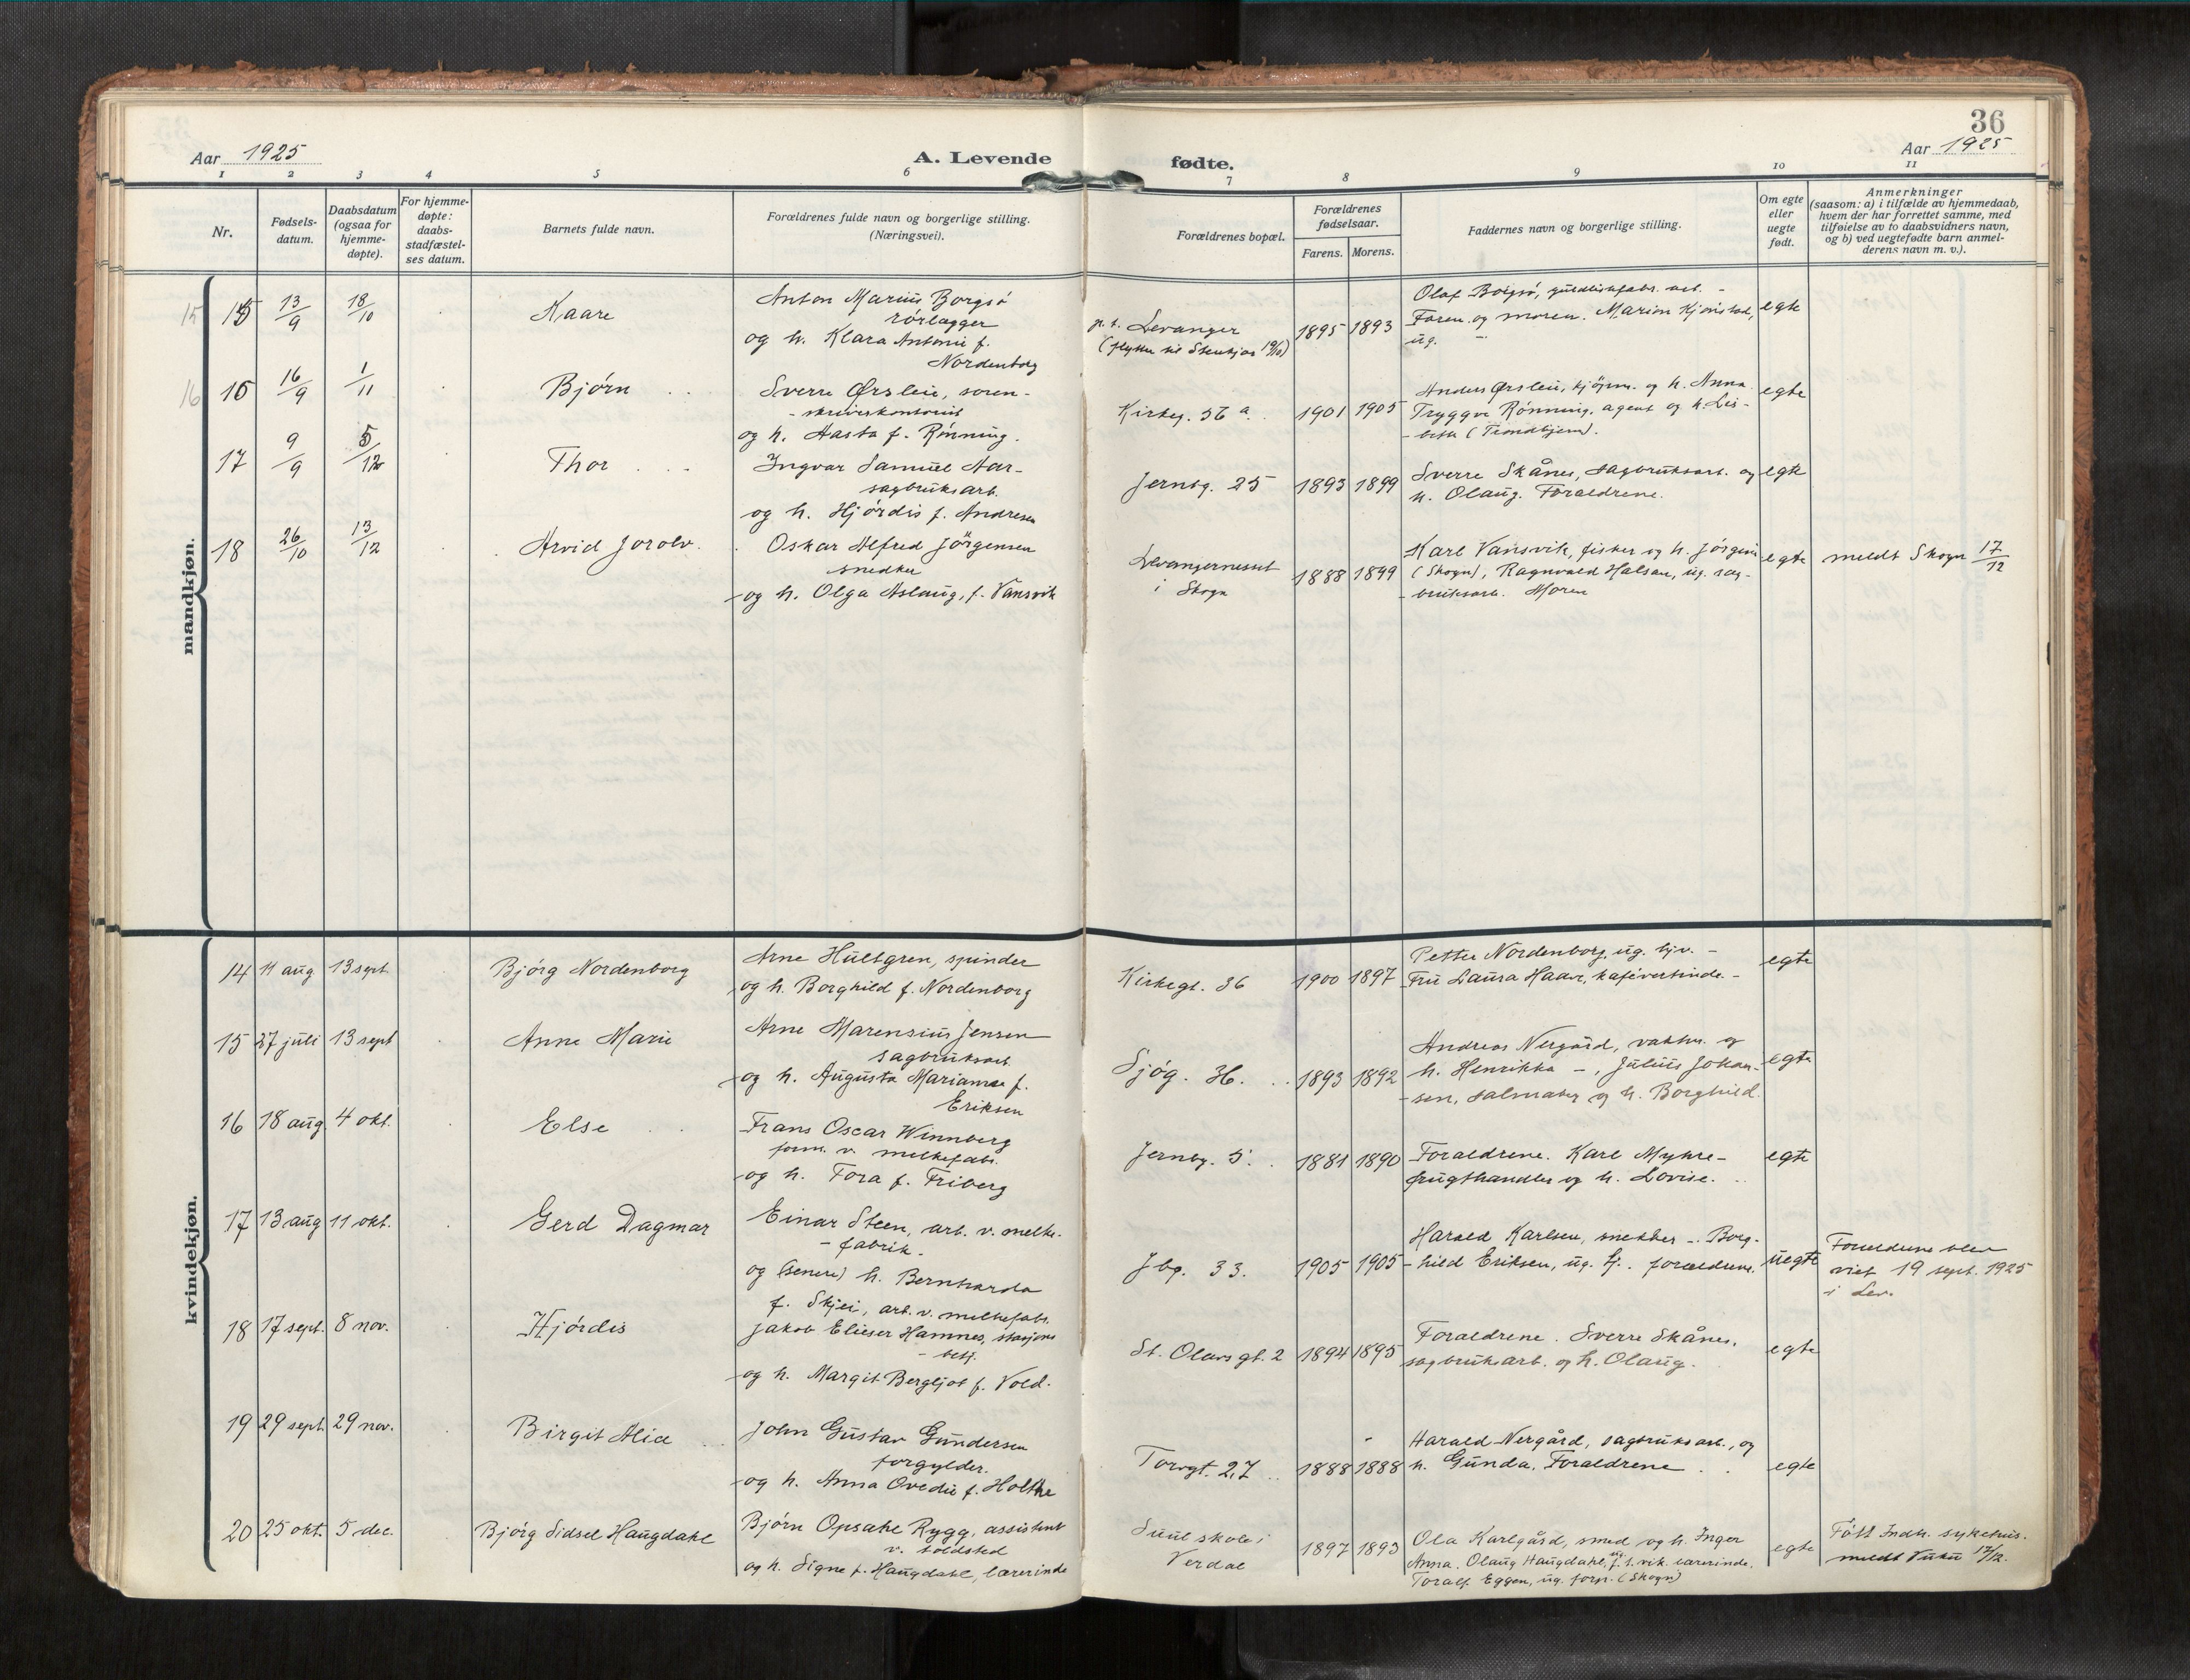 36
Aar 1925
A. Levende
fødte.
Aar 1925
1 2 3 4 5 6 7 8 9 10 11
Nr.
Fødsels-
datum.
Daabsdatum
(ogsaa for
hjemme-
døpte).
For hjemme-
døpte:
daabs-
stadfæstel-
ses datum.
Barnets fulde navn.
Forældrenes fulde navn og borgerlige stilling.
(Næringsvei).
Forældrenes bopæl.
Forældrenes
fødselsaar.
Farens. Morens.
Faddernes navn og borgerlige stilling.
Om egte
eller
uegte
født.
Anmerkninger
(saasom: a) i tilfælde av hjemmedaab,
hvem der har forrettet samme, med
tilføielse av to daabsvidners navn,
og b) ved uegtefødte barn anmel-
derens navn m. v.).
mandkjøn.
15 15 13/9 18/10 Kaare
Anton Marius Borgsö
rörlægger
og h. Klara Antonie f.
Nordenborg
p. t. Levanger
1895 1893
Olaf Borgsö,
Faren og moren. Marion Kjönstad,
ug.
egte
16 16 16/9 1/11 Björn
Sverre Ørsleie, soren-
- skriverkontorist
og h. Aasta f. Rönning.
Kirkeg. 36 a.
1901 1905
Anders Ørsleie, kjöpm. og h. Anna
Tryggve Rönning, agent og h. Lis-
- beth (Trondhjem).
egte
17 9/9 5/12 Thor
Ingvar Samuel Aar-
sagbruksarb.
og h. Hjördis f. Andresen
Jernbg. 25
1893 1899
Sverre Skånes, sagbruksarb. og
h. Olaug. Foraeldrene.
egte
18 26/10 13/12 Arvid Jorolv
Oskar Alfred Jörgensen
snedker
og h. Olga Aslaug, f. Vansvik
Levangernesset
i Skogn
1888 1899
Karl Vansvik, fisker og h. Jörgine
(Skogn), Ragnvald Halsan, ug. sag-
- bruksarb. Moren
egte
meldt Skogn 17/12
kvindekjøn.
14 11 aug 13 sept. Bjórg Nordenborg
Arne Hultgren, spinder
og h. Borghild f. Nordenborg
Kirkegt. 36
1900 1897
Petter Nordenborg, ug. bjv. -
Fru Laura Haave, kafévertinde. -
egte
15 27 juli 13 sept Anne Marie
Arne Marensius Jensen
sagbruksarb.
og h. Augusta Marianna f.
Eriksen
Sjög. 36.
1893 1892
Andreas Nergård, vaktm. og
h. Henrikka -, Julius Johan-
- sen, salmaker og h. Borghild.
egte
16 18 aug 4 okt. Else
Frans Oscar Winnberg
form. v. melkefabr.
og h. Tora f. Friberg
Jernbg. 5.
1881 1890
Foraeldrene. Karl Myhre -
frugthandler og h. Lovise.
egte
17 13 aug 11 okt. Gerd Dagmar
Einar Steen, arb. v. melke-
- fabrik -
og (senere) h. Bernharda
f. Skjei, arb. v. melkefabr.
Jbg. 33.
1905 1905
Harald Karlsen, snekker -. Borg-
- hild Eriksen, ug. tj. foraeldrene.
uegte
Foraeldrene blev
viet 19 sept. 1925
i Lev.
18 17 sept. 8 nov. Hjördis
Jakob Elieser Hamnes, stasjons
- betj.
og h. Margit Bergljot f. Vold.
St. Olavs gt. 2
1894 1895
Foraeldrene. Sverre Skånes,
sagbruksarb. og h. Olaug.
egte
19 29 sept. 29 nov. Birgit Alice
John Gustav Gundersen
forgylder.
og h. Anna Ovedie f. Holthe
Torvgt. 27
1888 1888
Harald Nergård, sagbruksarb., og
h. Gunda. Foraeldrene
egte
20 25 okt. 5 dec. Bjórg Sidsel Haugdahl
Björn Opsahl Rygg, assistent
v. toldsted
og h. Signe f. Haugdahl, lærerinde
Suul skole i
Verdal
1897 1893
Ola Karlgård, smed og h. Inger
Anna. Olaug Haugdahl, ug. f. t. vik. lærerinde.
Toralf Eggen, ug. forp. (Skogn)
egte
Fött Indh. sykehus.
meldt Vuku 17/12.